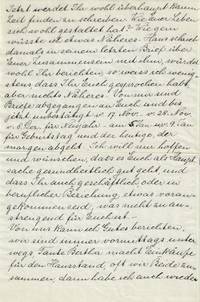 Jetzt werdet Ihr wohl überhaupt kaum
Zeit finden zu schreiben. Wie Euer Leben
sich wohl gestaltet hat? Wie gern
wüsste ich etwas Näheres. Hans schrieb
damals in seinem letzten Brief über
Euer zusammensein mit ihm, würde
wohl Ihr berichten, so weiss ich wenig-
stens dass Ihr Euch gesprochen habt,
aber nichts Näheres. Von mir sind
Briefe abgegangen an Euch und bis
jetzt unbestätigt v. 17. Nov. v. 28. Nov.
v. 8. Dez. für Neujahr, am 5. Jan. u. 9. Jan.
für Geburtstag und der heutige, der
morgen abgeht. Ich will nur hoffen
und wünschen, dass es Euch als Haupt
sache gesundheitlich gut geht, und
dass Ihr auch geschäftlich oder in
beruflicher Beziehung, etwas voran-
gekommen seid, was nicht zu an-
strengend für Euch ist.
Von uns kann ich Gutes berichten,
wir sind immer vormittags unter
wegs Tante Bertha macht Einkäufe
für den Haushalt, oft wir Beide zu
sammen, dann habe ich auch wieder